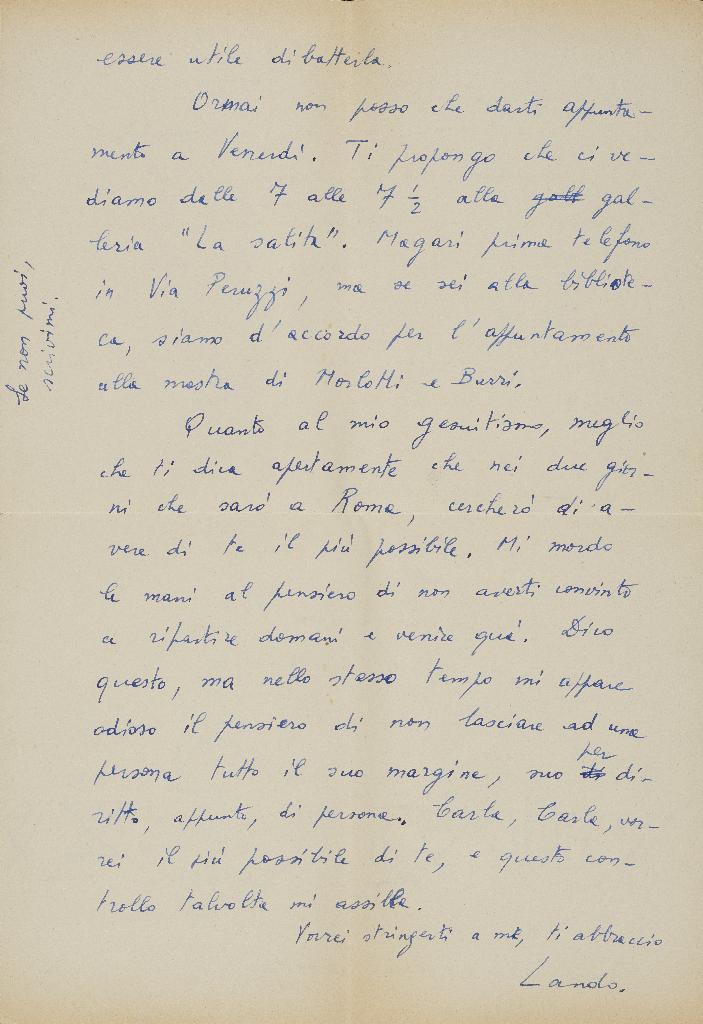 essere utile dibatterla.
Ormai non posso che darti appunta-
mento a Venerdì. Ti propongo che ci ve-
diamo dalle 7 alle 7 1/2 alla gall gal-
leria "La salita". Magari prima telefono
in Via Peruzzi, ma se sei alla bibliote-
ca, siamo d'accordo per l'appuntamento
alla mostra di Morlotti e Burri.
Quanto al mio gesuitismo, meglio
che ti dica apertamente che nei due gior-
ni che sarò a Roma, cercherò di a-
vere di te il più possibile. Mi mordo
le mani al pensiero di non averti convinto
a ripartire domani e venire quà. Dico
questo, ma nello stesso tempo mi appare
odioso il pensiero di non lasciare ad una
persona tutto il suo margine, suo per di-
ritto, appunto, di persona. Carla, Carla, vor-
rei il più possibile di te, e questo con-
trollo talvolta mi assilla.
Vorrei stringerti a me, ti abbraccio
Lando.
Se non puoi,
scrivimi.